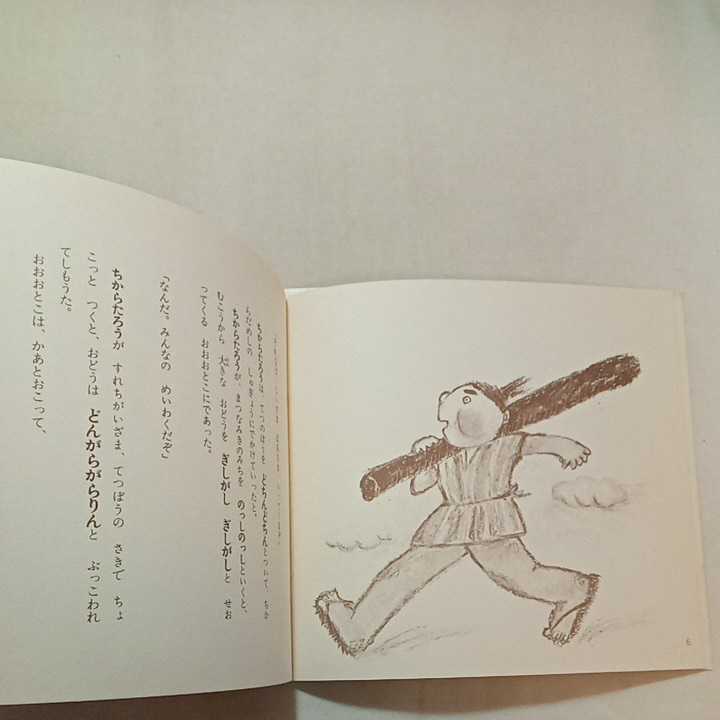 ちからたろうは、てつのぼうを どちんどちんとついて、ちか
らだめしの しゅぎょうにでかけていったと。
ちからたろうが、まつなみきのみちを のっしのっしといくと、
むこうから 大きな おどうを ぎしがし ぎしがしと せお
ってくる おおおとこにであった。
「なんだ。みんなの めいわくだぞ」
ちからたろうが すれちがいざま、てつぼうの さきで ちょ
こっと つくと、おどうは どんがらがらりんと ぶっこわれ
てしもうた。
おおおとこは、かあとおこって、
6